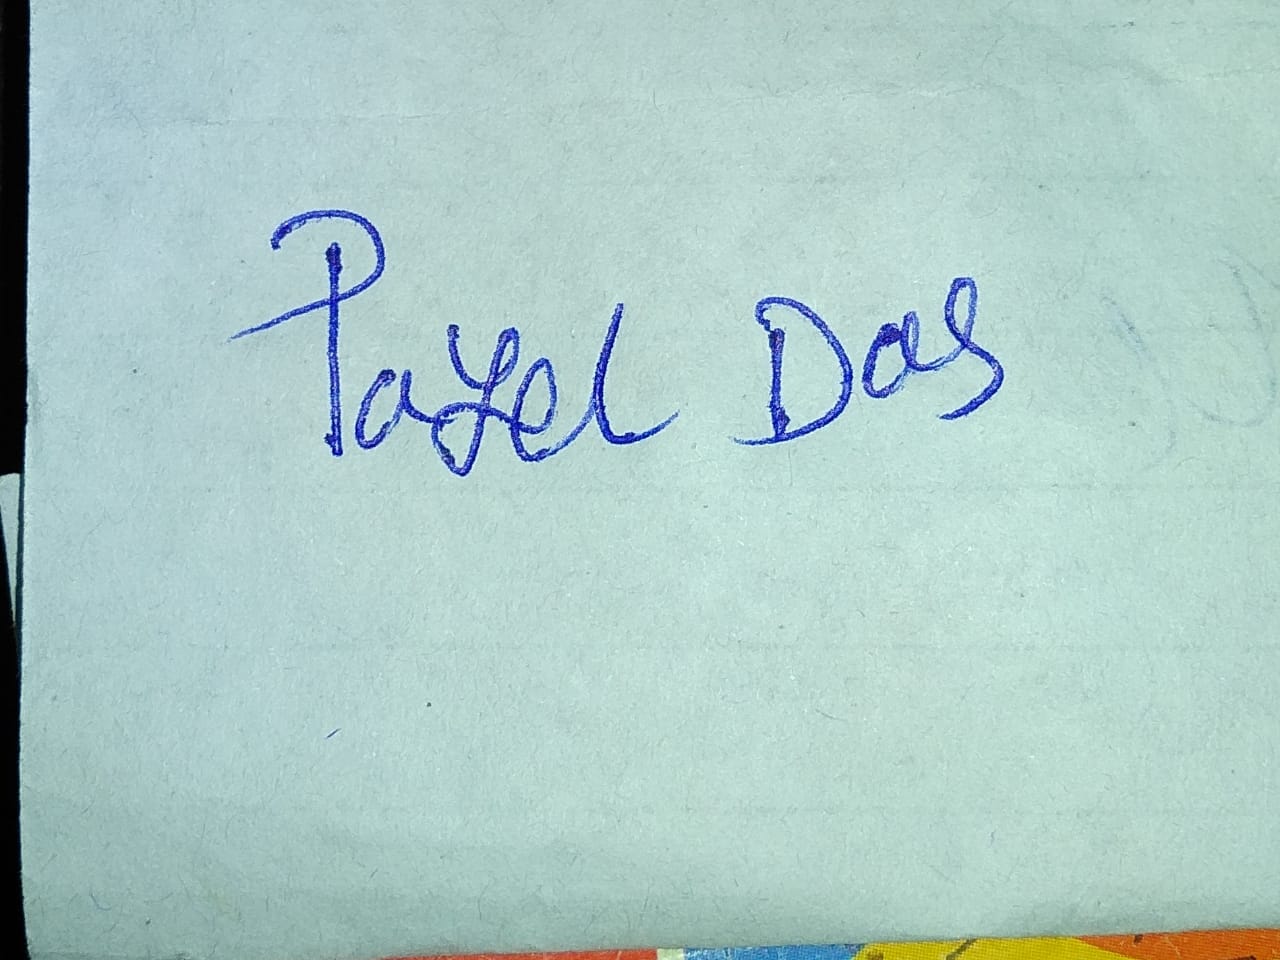 Payel Das